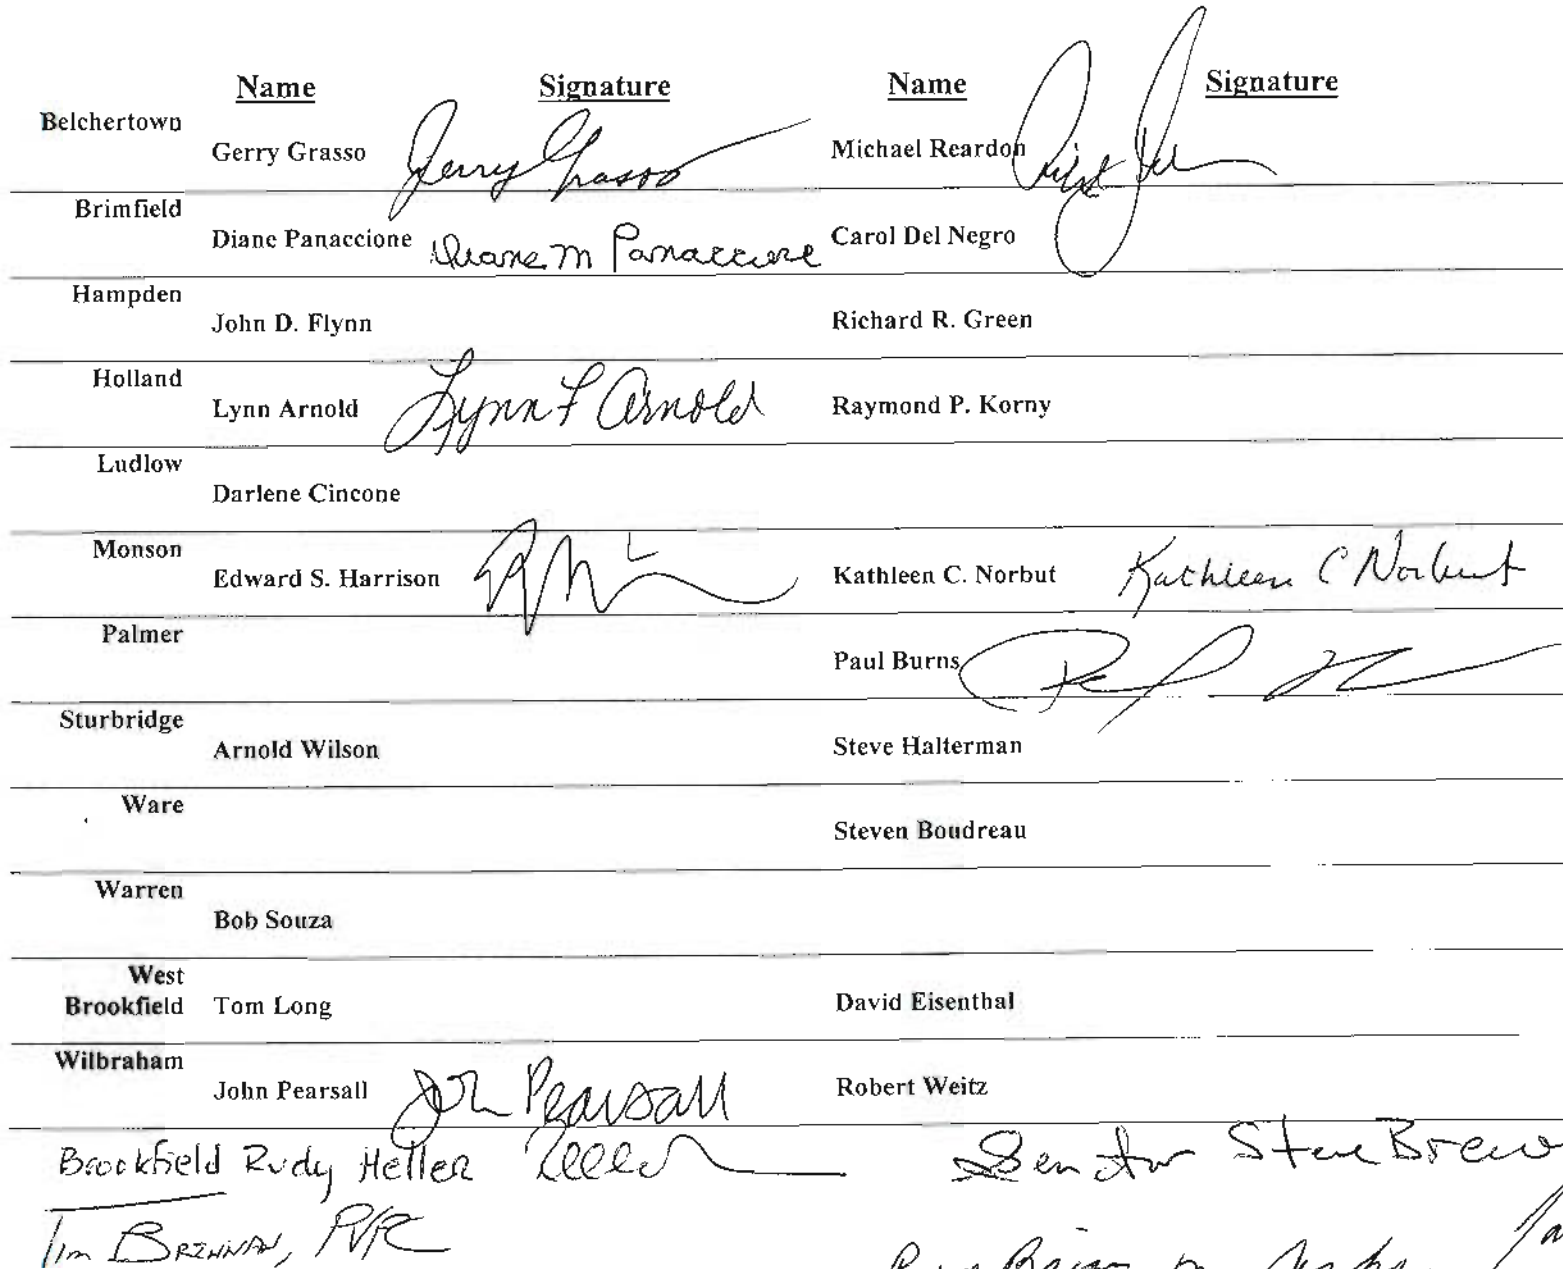 Name Signature Name Signature
Belchertown
Gerry Grasso Jerry Grasso Michael Reardon
Brimfield
Diane Panaccione Diane M Panaccione Carol Del Negro
Hampden
John D. Flynn Richard R. Green
Holland
Lynn Arnold Lynn F Arnold Raymond P. Korny
Ludlow
Darlene Cincone
Monson
Edward S. Harrison Kathleen C. Norbut Kathleen C Norbut
Palmer
Paul Burns
Sturbridge
Arnold Wilson Steve Halterman
Ware
Steven Boudreau
Warren
Bob Souza
West
Brookfield Tom Long David Eisenthal
Wilbraham
John Pearsall John Pearsall Robert Weitz
Brookfield Rudy Heller Senator Steve Brew
Tim BRENNAN, PVPC
Brian M.